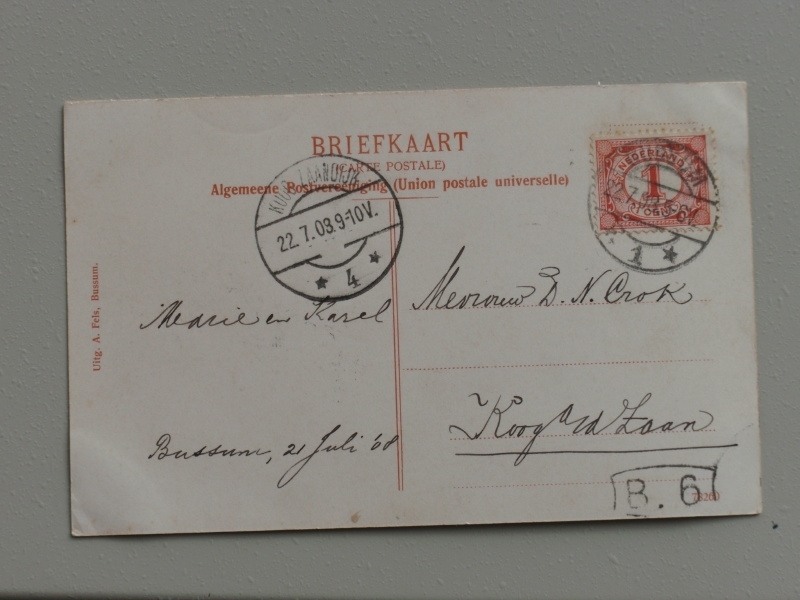 BRIEFKAART
(CARTE POSTALE)
Algemeene Postvereeniging (Union postale universelle)
NEDERLAND
1
KOOG-ZAANDIJK
22.7.08.9-10V.
* 4 *
1 *
Marie en Karel
Bussum, 21 Juli '08
Mevrouw D. N. Crok
Koog a/d Zaan
B. 6
78260
Uitg. A. Fels, Bussum.